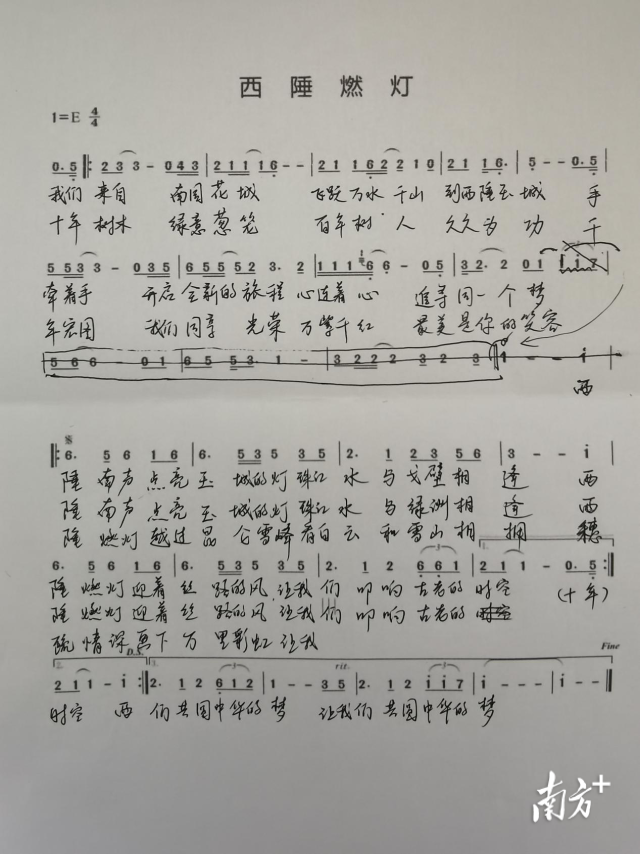 西陲燃灯
1=E 4/4
0.5 233- 043 211 16-- 21 162 21210 21 16. 5-- 0.5
我们 来自 南国花城 飞跃万水千山 到西陲玉城 手
十年树木 绿意葱茏 百年树人 久久为功 千
553 3- 035 65552 3.2 1116 6-- 32. 2 01
牵着手 开启全新的旅程 心连着心 追寻同一个梦
年宏图 我们同享 光荣 万紫千红 最美是你的笑容
566- 01 65 53. 1- 3222 232 1--i
西
6. 56 16 6. 535 35 2. 1 23 56 3--i
陲 南声点亮玉 城的灯 珠江 水 与戈壁相 逢 西
陲 南声点亮玉 城的灯 珠江 水 与绿洲相 逢 西
陲 燃灯越过昆 仑雪峰 看白 云 和雪山相 拥 穗
1.
6. 56 16 6. 535 35 2. 12 66 12 211- 0.5
陲 燃灯迎着丝 路的风 让我 们 叩响 古老的 时空 (十年)
陲 燃灯迎着丝 路的风 让我们 叩响 古老的 时空
疏 情深 天下 万 里彩虹 让我
2. D.S. 3. rit. Fine
211-i 2. 12 612 1--35 2. 12 ii7 i--- i---
时空 西 们 共圆中华的梦 让我们 共圆中华的梦
南方+